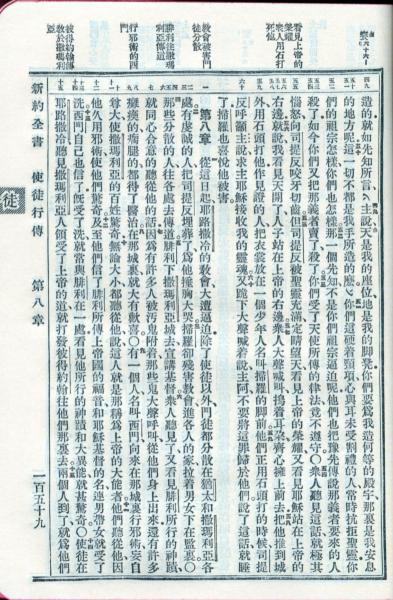 賽六十六
看見上帝的
榮耀
衆人用石打
死他
敎會被害門
徒分散
腓利往撒瑪
利亞傳道
行邪術的西
門
彼得約翰傳
敎於撒瑪利
亞
造的就如先知所言主說天是我的座位地是我的脚凳你們要爲我造何等的殿宇那裏是我安息
的地方呢這一切不都是我手所造的麼你們這硬着頸項心與耳未受割禮的人常時抗拒聖靈你
們的祖宗怎樣你們也怎樣那一個先知不是你們祖宗逼迫呢他們也把豫先傳說那義者要來的人
殺了如今你們又把那義者賣了殺了你們受了天使所傳的律法竟不遵守○衆人聽見這話就極其
惱怒向司提反咬牙切齒司提反被聖靈充滿定睛望天看見上帝的榮耀又看見耶穌站在上帝的
右邊就說我看見天開了人子站在上帝的右邊衆人大聲喊叫搗着耳朶齊心擁上前去把他推到城
外用石頭打他作見證的人把衣裳放在一個少年人名叫掃羅的脚前他們正用石頭打的時候司提
反呼籲主說求主耶穌接收我的靈魂又跪下大聲喊着說主阿不要將這罪歸於他們說了這話就睡
了掃羅也喜悅他被害
第八章 從這日起耶路撒冷的敎會大遭逼迫除了使徒以外門徒都分散在猶太和撒瑪利亞各
處有虔誠的人把司提反埋葬了爲他捶胸大哭掃羅卻殘害敎會進各人的家拉着男女下在監裏○
那些分散的人往各處去傳道腓利下撒瑪利亞城去宣講基督衆人聽見了又看見腓利所行的神蹟
就同心合意的聽從他的話因爲有許多人被汚鬼附着那些鬼大聲呼叫從他們身上出來還有許多
癱瘓的瘸腿的都得了醫治在那城裏就大有歡喜○有一個人名叫西門向來在那城裏行邪術妄自
尊大使撒瑪利亞的百姓驚奇無論大小都聽從他說這人就是那稱爲上帝的大能者他們聽從他因
他久用邪術使他們驚奇及至他們信了腓利所傳上帝國的福音和耶穌基督的名連男帶女就受了
洗西門自己也信了旣受了洗就常與腓利在一處看見他所行的神蹟和大異能就甚驚奇○使徒在
耶路撒冷聽見撒瑪利亞人領受了上帝的道就打發彼得約翰往他們那裏去兩個人到了就爲他們
新約全書 使徒行傳 第八章 一百五十九
徒